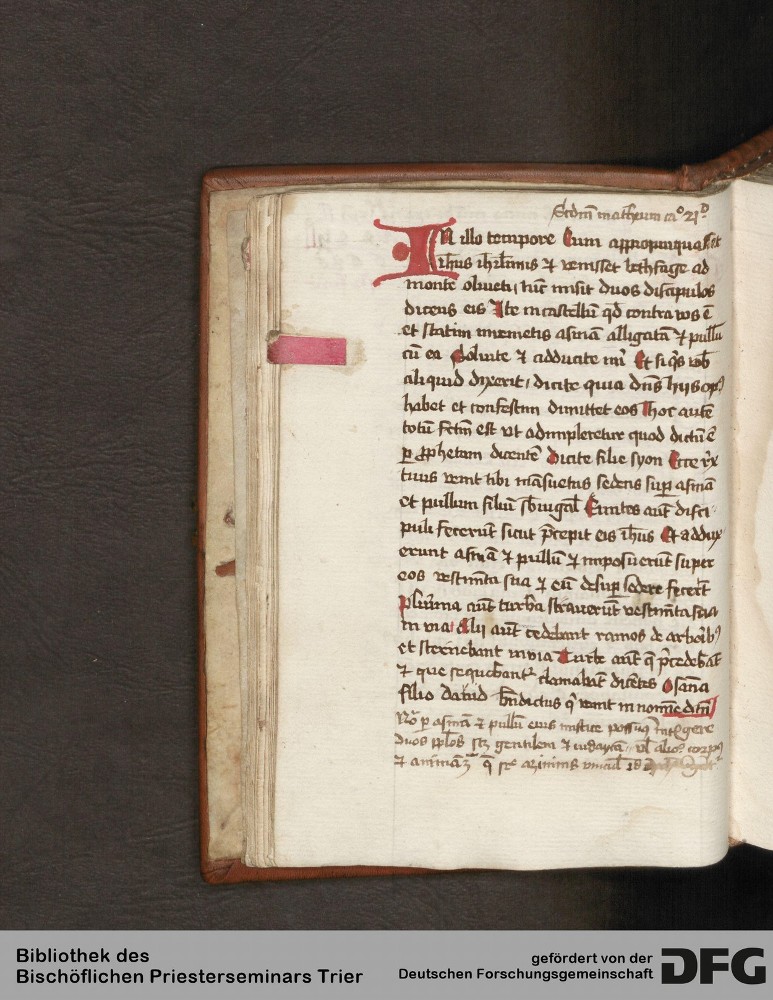 Scdm matheum ca° 21
In illo tempore Cum appropinquasset
ihus iherlimis et venisset bethfage ad
monte oliueti, tuc misit duos discipulos
dicens eis Ite in castellu qd contra vos ē
et statim inuenietis asinā alligatā et pullū
cū ea Soluite et adducite mi Et si qs vob
aliquid dixerit, dicite quia dns hiis op
habet et confestim dimittet eos Hoc autē
totū fctm est vt adimpleretur quod dictū ē
per prophetam dicentē Dicite filie syon Ecce rex
tuus venit tibi māsuetus sedens sup asinā
et pullum filiū sbiugal Euntes aūt disci-
puli fecerūt sicut p̄cepit eis ihus Et addux
erunt asinā et pullū et imposuerūt super
eos vestimta sua et eū desup sedere fecert
plurima aūt turba strauerūt vestimta sua
in via Alii aūt cedebant ramos de arborib
et sternebant in via Turbe aūt q p̄cedebāt
et que sequebant clamabāt dicētes Osāna
filio dauid bndictus q venit in nomīe dni
per asinā et pullū eius mistice possum intelligere
duos pplos scz gentilem et iudaycū vl alios corpus
et animā
Bibliothek des
Bischöflichen Priesterseminars Trier
gefördert von der
Deutschen Forschungsgemeinschaft
DFG